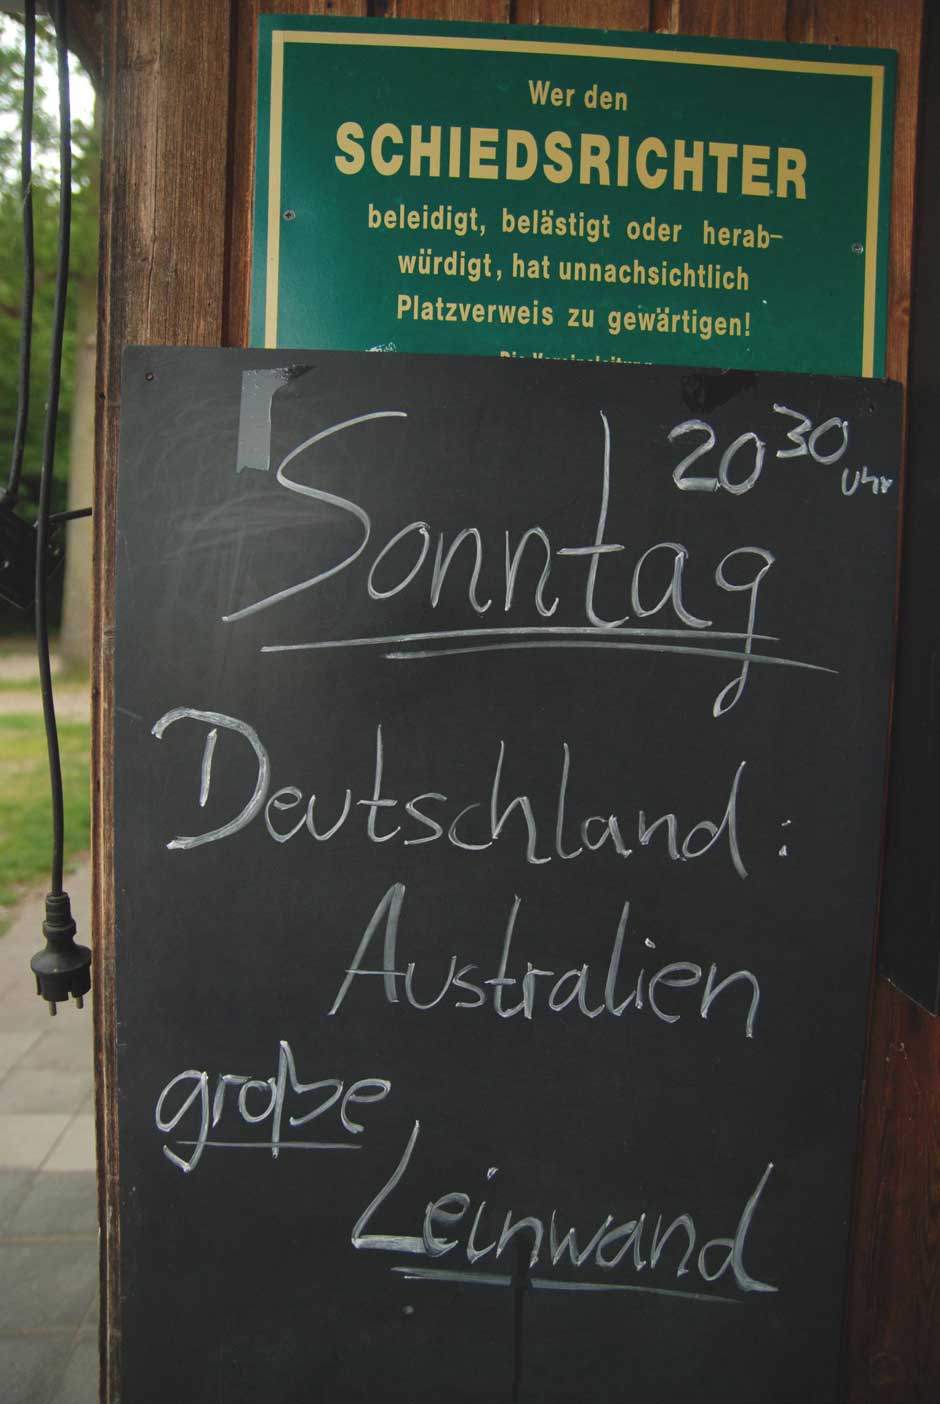 Wer den
SCHIEDSRICHTER
beleidigt, belästigt oder herab-
würdigt, hat unnachsichtlich
Platzverweis zu gewärtigen!
Die Vereinsleitung
20 30 Uhr
Sonntag
Deutschland:
Australien
große
Leinwand